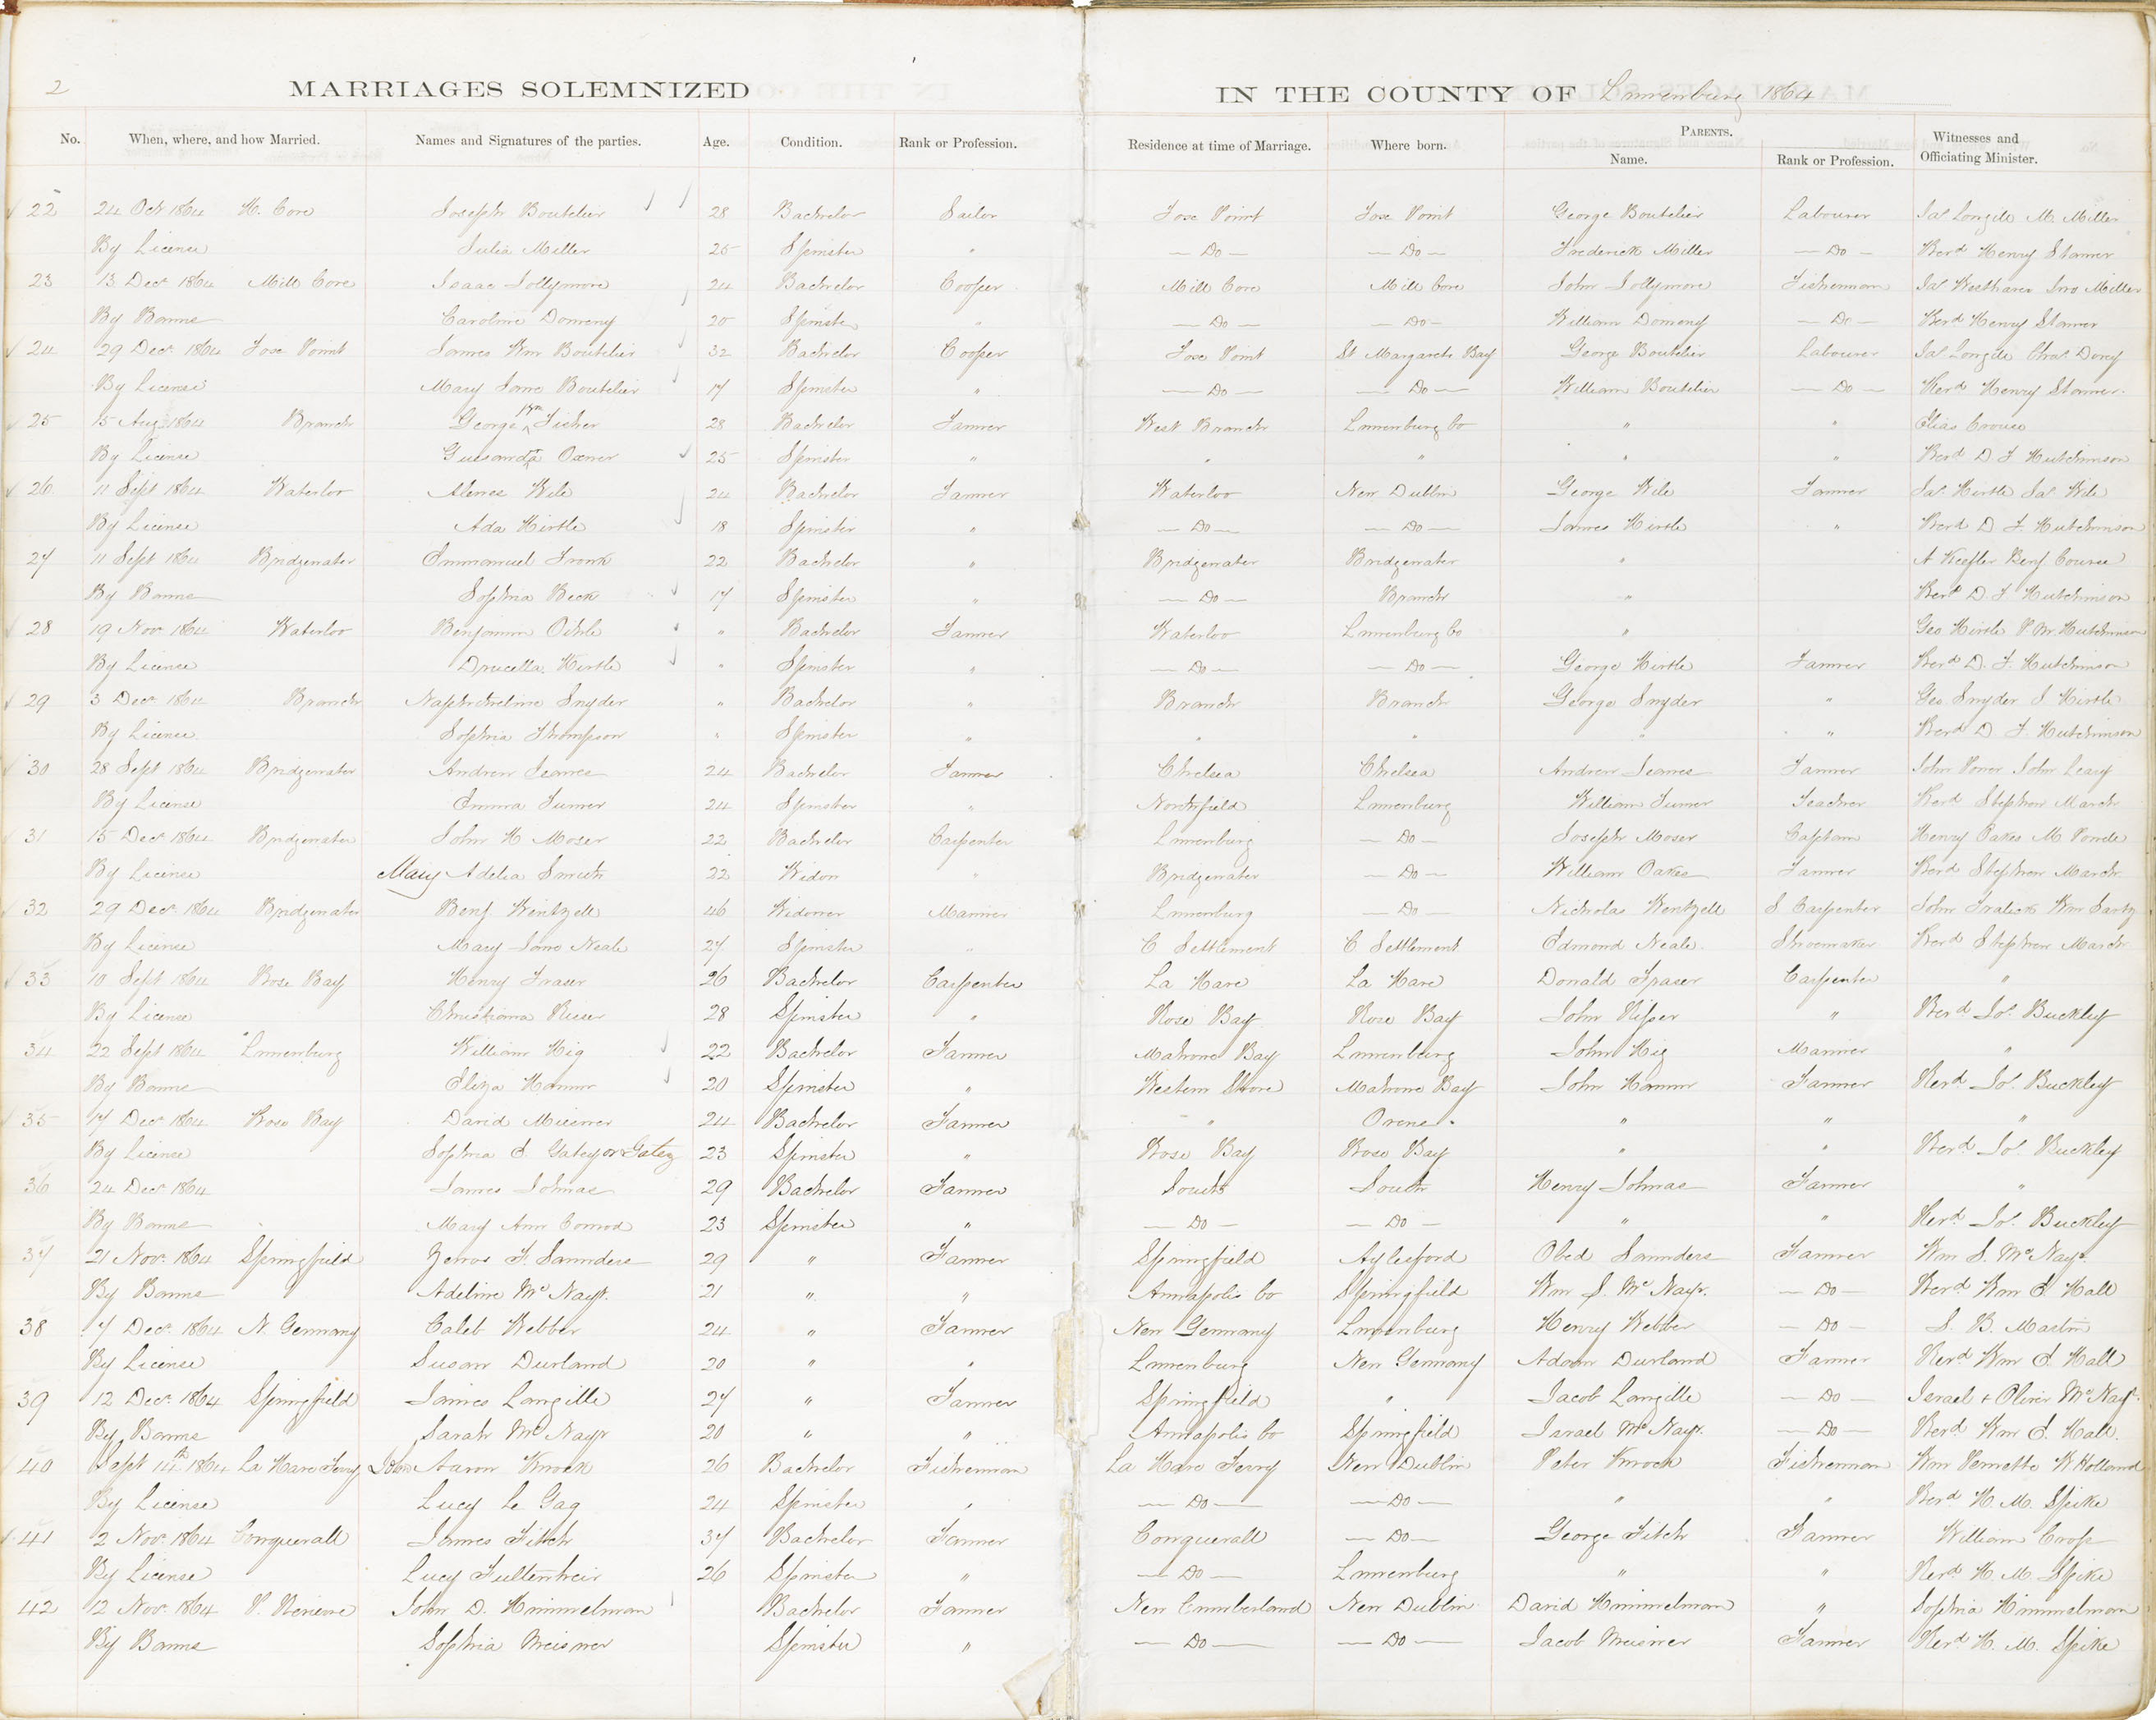 2
MARRIAGES SOLEMNIZED IN THE COUNTY OF Lunenburg 1864
No. When, where, and how Married. Names and Signatures of the parties. Age. Condition. Rank or Profession. Residence at time of Marriage. Where born. PARENTS. Name. Rank or Profession. Witnesses and Officiating Minister.
22 24 Oct 1864 M. Cove Joseph Boutelier 28 Bachelor Sailor Fox Point Fox Point George Boutelier Labourer Jas Longile M. Miller
By License Julia Miller 25 Spinster " — Do — — Do — Frederick Miller — Do — Revd Henry Stamer
23 13 Decr 1864 Mill Cove Isaac Jollymore 24 Bachelor Cooper Mill Cove Mill Cove John Jollymore Fisherman Jas Westhaver Jno Miller
By Banns Caroline Domeny 20 Spinster " — Do — — Do — William Domony — Do — Revd Henry Stamer
24 29 Decr 1864 Fox Point James Wm Boutelier 32 Bachelor Cooper Fox Point St Margarets Bay George Boutelier Labourer Jas Longile Chas Dorey
By License Mary Jane Boutelier 17 Spinster " — Do — — Do — William Boutelier — Do — Revd Henry Stamer
25 15 Aug 1864 Branch George Wm Ficher 28 Bachelor Farmer West Branch Lunenburg Co " " Elias Crouse
By License Gusanda Oxner 25 Spinster " " " " " Revd D F Hutchinson
26 11 Sept 1864 Waterloo Wile 24 Bachelor Farmer Waterloo New Dublin George Wile Farmer Jas Hirtle Jas Wile
By License Ada Hirtle 18 Spinster " — Do — — Do — James Hirtle " Revd D. F. Hutchinson
27 11 Sept 1864 Bridgewater Emmanuel Fronk 22 Bachelor " Bridgewater Bridgewater " A Keefler Benj. Course
By Banns Sophia Beck 17 Spinster " — Do — Branch " Revd D. F Hutchinson
28 19 Nov 1864 Waterloo Benjamin Oikle " Bachelor Farmer Waterloo Lunenburg Co " Geo Hirtle P. M. Hutchinson
By License Drucella Hirtle " Spinster " — Do — — Do — George Hirtle Farmer Revd D. F. Hutchinson
29 3 Decr 1864 Branch Naphtheline Snyder " Bachelor " Branch Branch George Snyder " Geo Snyder S Hirtle
By License Sophia Thompson " Spinster " " " " " Revd D. F. Hutchinson
30 28 Sept 1864 Bridgewater Andrew Seames 24 Bachelor Farmer Chelsea Chelsea Andrew Seames Farmer John Power John Leary
By License Emma Turner 24 Spinster " Northfield Lunenburg William Turner Teacher Revd Stephen March
31 15 Decr 1864 Bridgewater John H Moser 22 Bachelor Carpenter Lunenburg — Do — Joseph Moser Captain Henry Oakes M
By License Mary Adelia Smith 22 Widow " Bridgewater — Do — William Oakes Farmer Revd Stephen March
32 29 Decr 1864 Bridgewater Benj. Wentzell 46 Widower Mariner Lunenburg — Do — Nicholas Wentzell S. Carpenter John Fralick Wm Sarty
By License Mary Jane Neale 27 Spinster " C Settlement C Settlement Edmond Neale Shoemaker Revd Stephen March
33 10 Sept 1864 Rose Bay Henry Fraser 26 Bachelor Carpenter La Have La Have Donald Fraser Carpenter "
By License Christiana Riser 28 Spinster " Rose Bay Rose Bay John Risser " Revd Jos. Buckley
34 22 Sept 1864 Lunenburg William Hig 22 Bachelor Farmer Mahone Bay Lunenburg John Hig Mariner "
By Banns Eliza Hamm 20 Spinster " Western Shore Mahone Bay John Hamm Farmer Revd Jos. Buckley
35 17 Decr 1864 Rose Bay David Miesner 24 Bachelor Farmer " Ovens " " "
By License Sophia E. Gatey or Gatez 23 Spinster " Rose Bay Rose Bay " " Revd Jos. Buckley
36 24 Decr 1864 James Johnas 29 Bachelor Farmer South South Henry Johnas Farmer "
By Banns Mary Ann Conrod 23 Spinster " — Do — — Do — " " Revd Jos. Buckley
37 21 Nov. 1864 Springfield Zenos F. Saunders 29 " Farmer Springfield Aylesford Obed Saunders Farmer Wm S. McNayr.
By Banns Adeline McNayr. 21 " " Annapolis Co Springfield Wm S. McNayr. — Do — Revd Wm E. Hall
38 7 Decr 1864 N. Germany Caleb Webber 24 " Farmer New Germany Lunenburg Henry Webber — Do — S. B. Martin
By License Susan Durland 20 " " Lunenburg New Germany Adam Durland Farmer Revd Wm E. Hall
39 12 Decr 1864 Springfield James Langille 27 " Farmer Springfield " Jacob Langille — Do — Israel & Oliver McNayr
By Banns Sarah McNayr 20 " " Annapolis Co Springfield Israel McNayr. — Do — Revd Wm E. Hall
40 Sept 14th 1864 La Have Ferry John Aaron Knock 26 Bachelor Fisherman La Have Ferry New Dublin Peter Knock Fisherman Wm Pernette W. Holland
By License Lucy Le Gag 24 Spinster " — Do — — Do — " " Revd H. M. Spike
41 2 Nov. 1864 Conquerall James Fitch 37 Bachelor Farmer Conquerall — Do — George Fitch Farmer William Crop
By License Lucy Fultenheir 26 Spinster " — Do — Lunenburg " " Revd H. M. Spike
42 12 Nov. 1864 P. Reviere John D. Himmelman Bachelor Farmer New Cumberland New Dublin David Himmelman " Sophia Himmelman
By Banns Sophia Meisner Spinster " — Do — — Do — Jacob Meisner Farmer Revd H. M. Spike